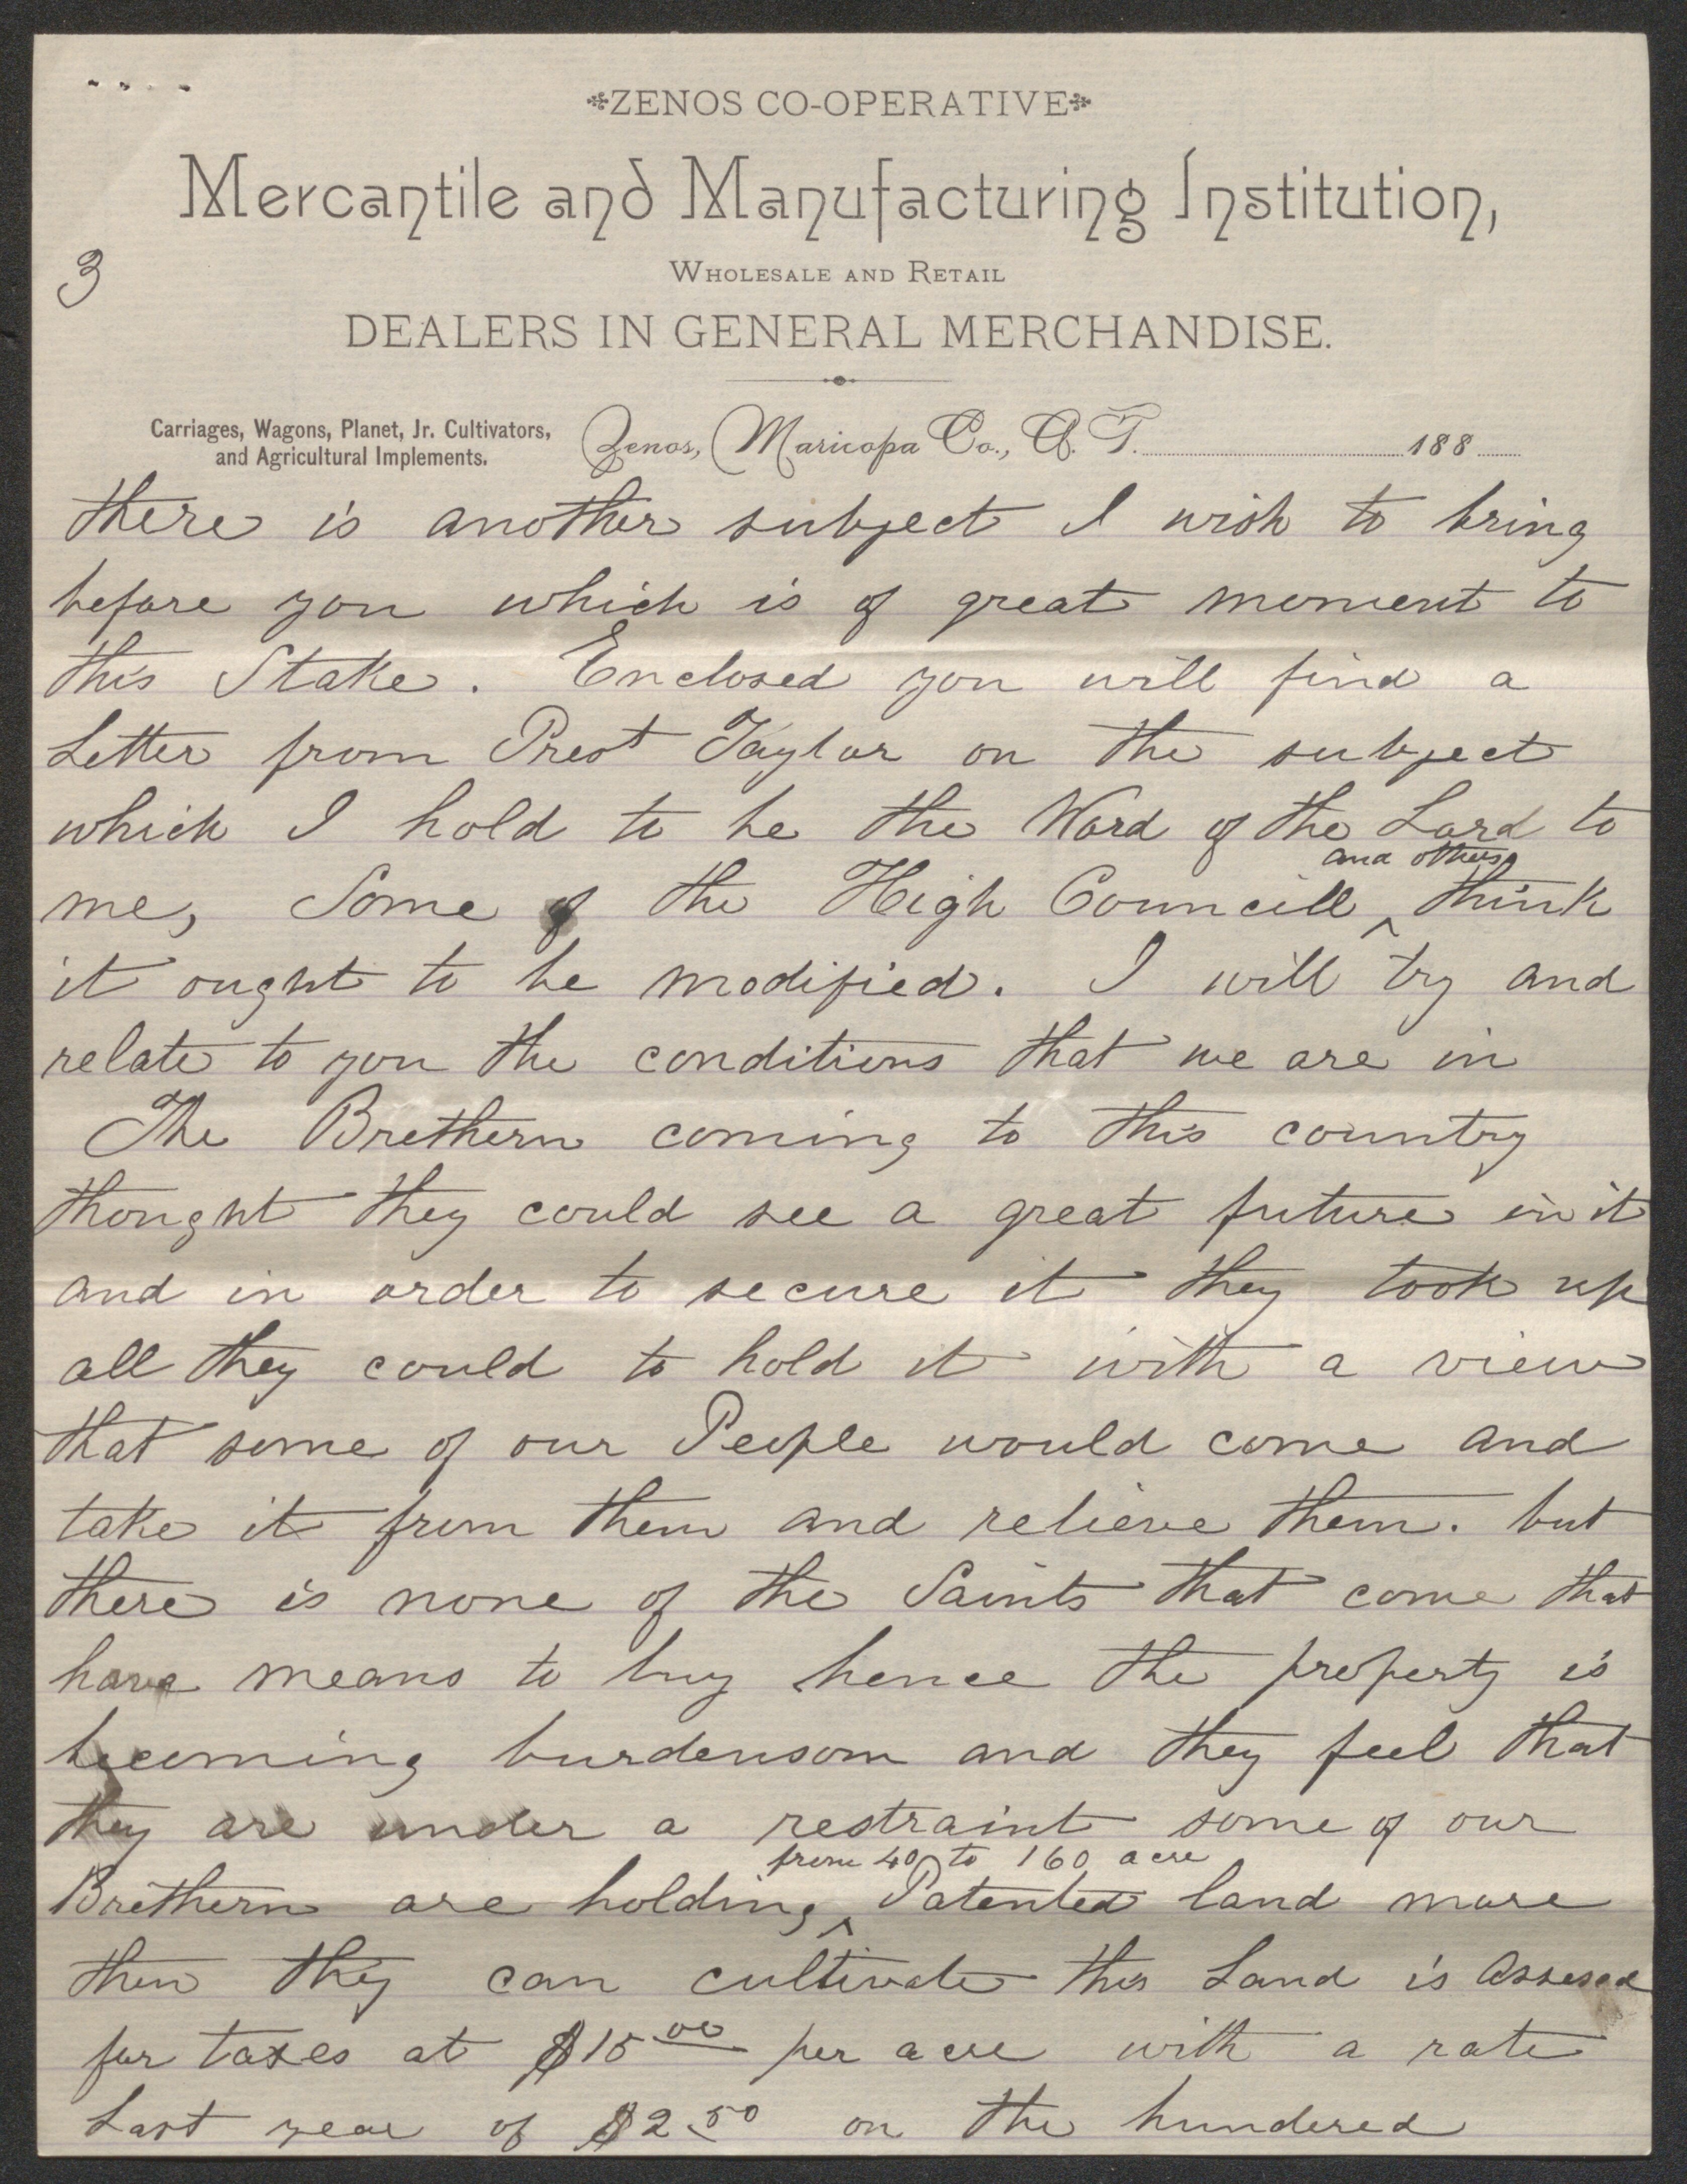 ZENOS CO-OPERATIVE
Mercantile and Manufacturing Institution,
3
WHOLESALE AND RETAIL
DEALERS IN GENERAL MERCHANDISE.
Carriages, Wagons, Planet, Jr. Cultivators,
and Agricultural Implements.
Zenos, Maricopa Co., A. T. 188
there is another subject I wish to bring
before you which is of great moment to
this Stake. Enclosed you will find a
Letter from Prest Taylor on the subject
which I hold to be the Word of the Lord to
and others
me, Some of the High Councill ^ think
it ought to be modified. I will try and
relate to you the conditions that we are in
The Brethern coming to this country
thought they could see a great future in it
and in order to secure it they took up
all they could to hold it with a view
that some of our People would come and
take it from them and relieve them. but
there is none of the Saints that come that
have means to buy hence the property is
becoming burdensom and they feel that
they are under a restraint some of our
from 40 to 160 acre
Brethern are holding ^ Patented land more
then they can cultivate this Land is Assesed
for taxes at $15.00 per acre with a rate
Last year of $2.50 on the hundered